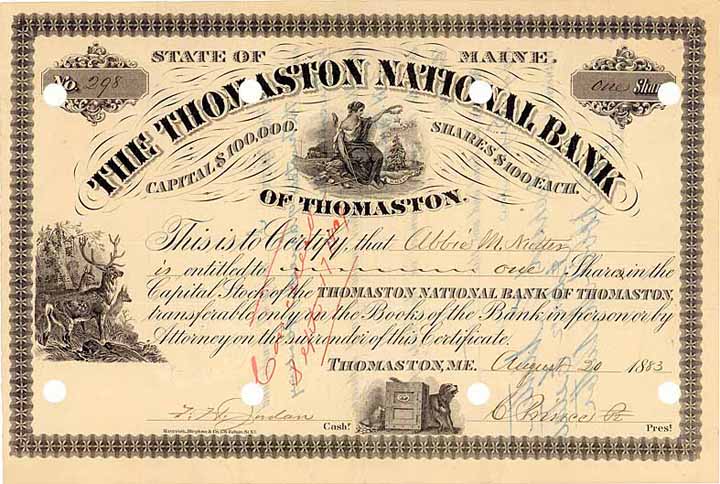 STATE OF MAINE.
No. 298
one Share
THE THOMASTON NATIONAL BANK
CAPITAL $100,000. SHARES $100 EACH.
OF THOMASTON.
This is to Certify, that Abbie M.
is entitled to one Shares, in the
Capital Stock of the THOMASTON NATIONAL BANK OF THOMASTON,
transferable only on the Books of the Bank in person or by
Attorney on the surrender of this Certificate.
Cancelled
Sept
THOMASTON, ME. August 20 1883
Jordan Cash.r
C Prince Pres.t